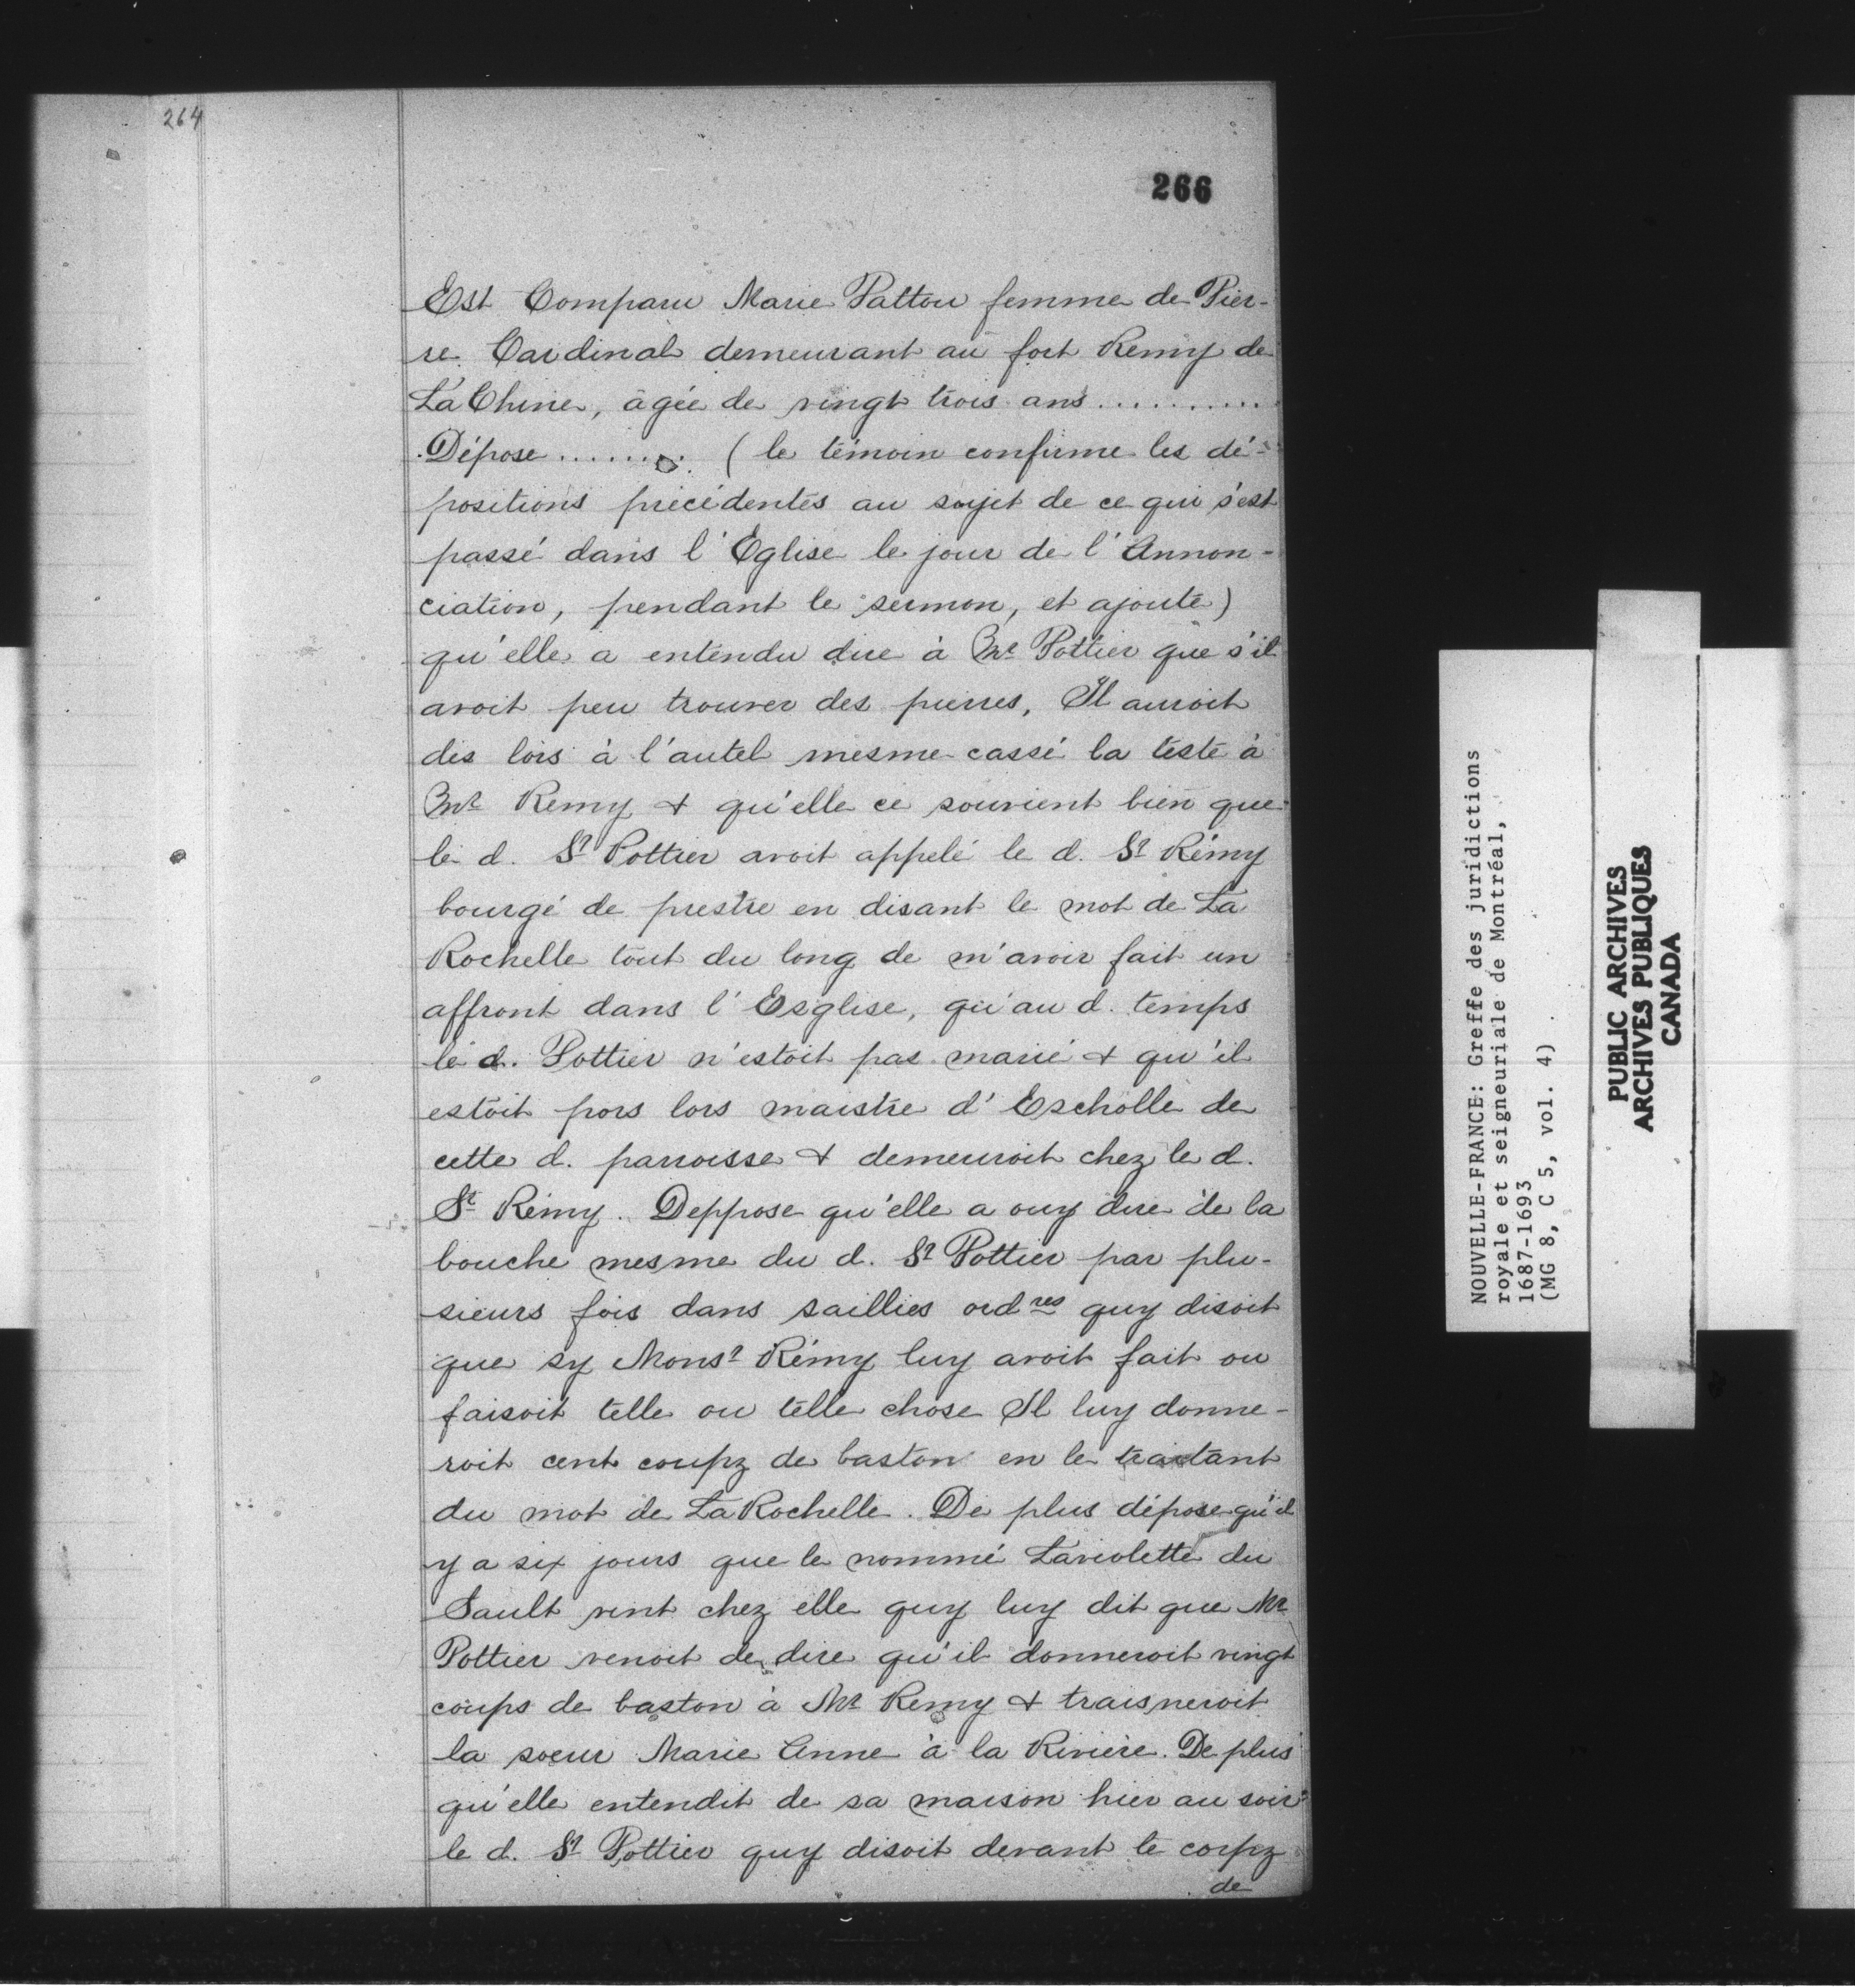 264
266
Est Comparu Marie Pattou femme de Pier-
re Cardinal demeurant au fort Remy de
La Chine, âgée de vingt trois ans ...........
Dépose ......... (le témoin confirme les dé-
positions précédentes au sujet de ce qui s'est
passé dans l'Eglise le jour de l'Annon-
ciation, pendant le sermon, et ajoute)
qu'elle a entendu dire à Mr Pottier que s'il
avoit peu trouver des pierres, Il auroit
dès lors à l'autel mesme cassé la teste à
Mr Remy & qu'elle ce souvient bien que
le d. Sr Pottier avoit appelé le d. Sr Rémy
bougé de prestre en disant le mot de La
Rochelle tout du long de m'avoir fait un
affront dans l'Esglise, qu'au d. temps
le d. Pottier n'estoit pas marié & qu'il
estoit pors lors maistre d'Escholle de
cette d. parroisse & demeuroit chez le d.
Sr Rémy. Deppose qu'elle a ouy dire de la
bouche mesme du d. Sr Pottier par plu-
sieurs fois dans saillies ordres quy disoit
que sy Monsr Rémy luy avoit fait ou
faisoit telle ou telle chose Il luy donne-
roit cent coupz de baston en le traitant
du mot de La Rochelle. De plus dépose qu'il
y a six jours que le nommé Laviolette du
Sault vint chez elle quy luy dit que Mr
Pottier venoit de dire qu'il donneroit vingt
coups de baston à Mr Remy & traisneroit
la soeur Marie Anne à la Rivière. De plus
qu'elle entendit de sa maison hier au soir
le d. Sr Pottier quy disoit devant le corpz
de
NOUVELLE-FRANCE: Greffe des juridictions
royale et seigneuriale de Montréal,
1687-1693
(MG 8, C 5, vol. 4).
PUBLIC ARCHIVES
ARCHIVES PUBLIQUES
CANADA